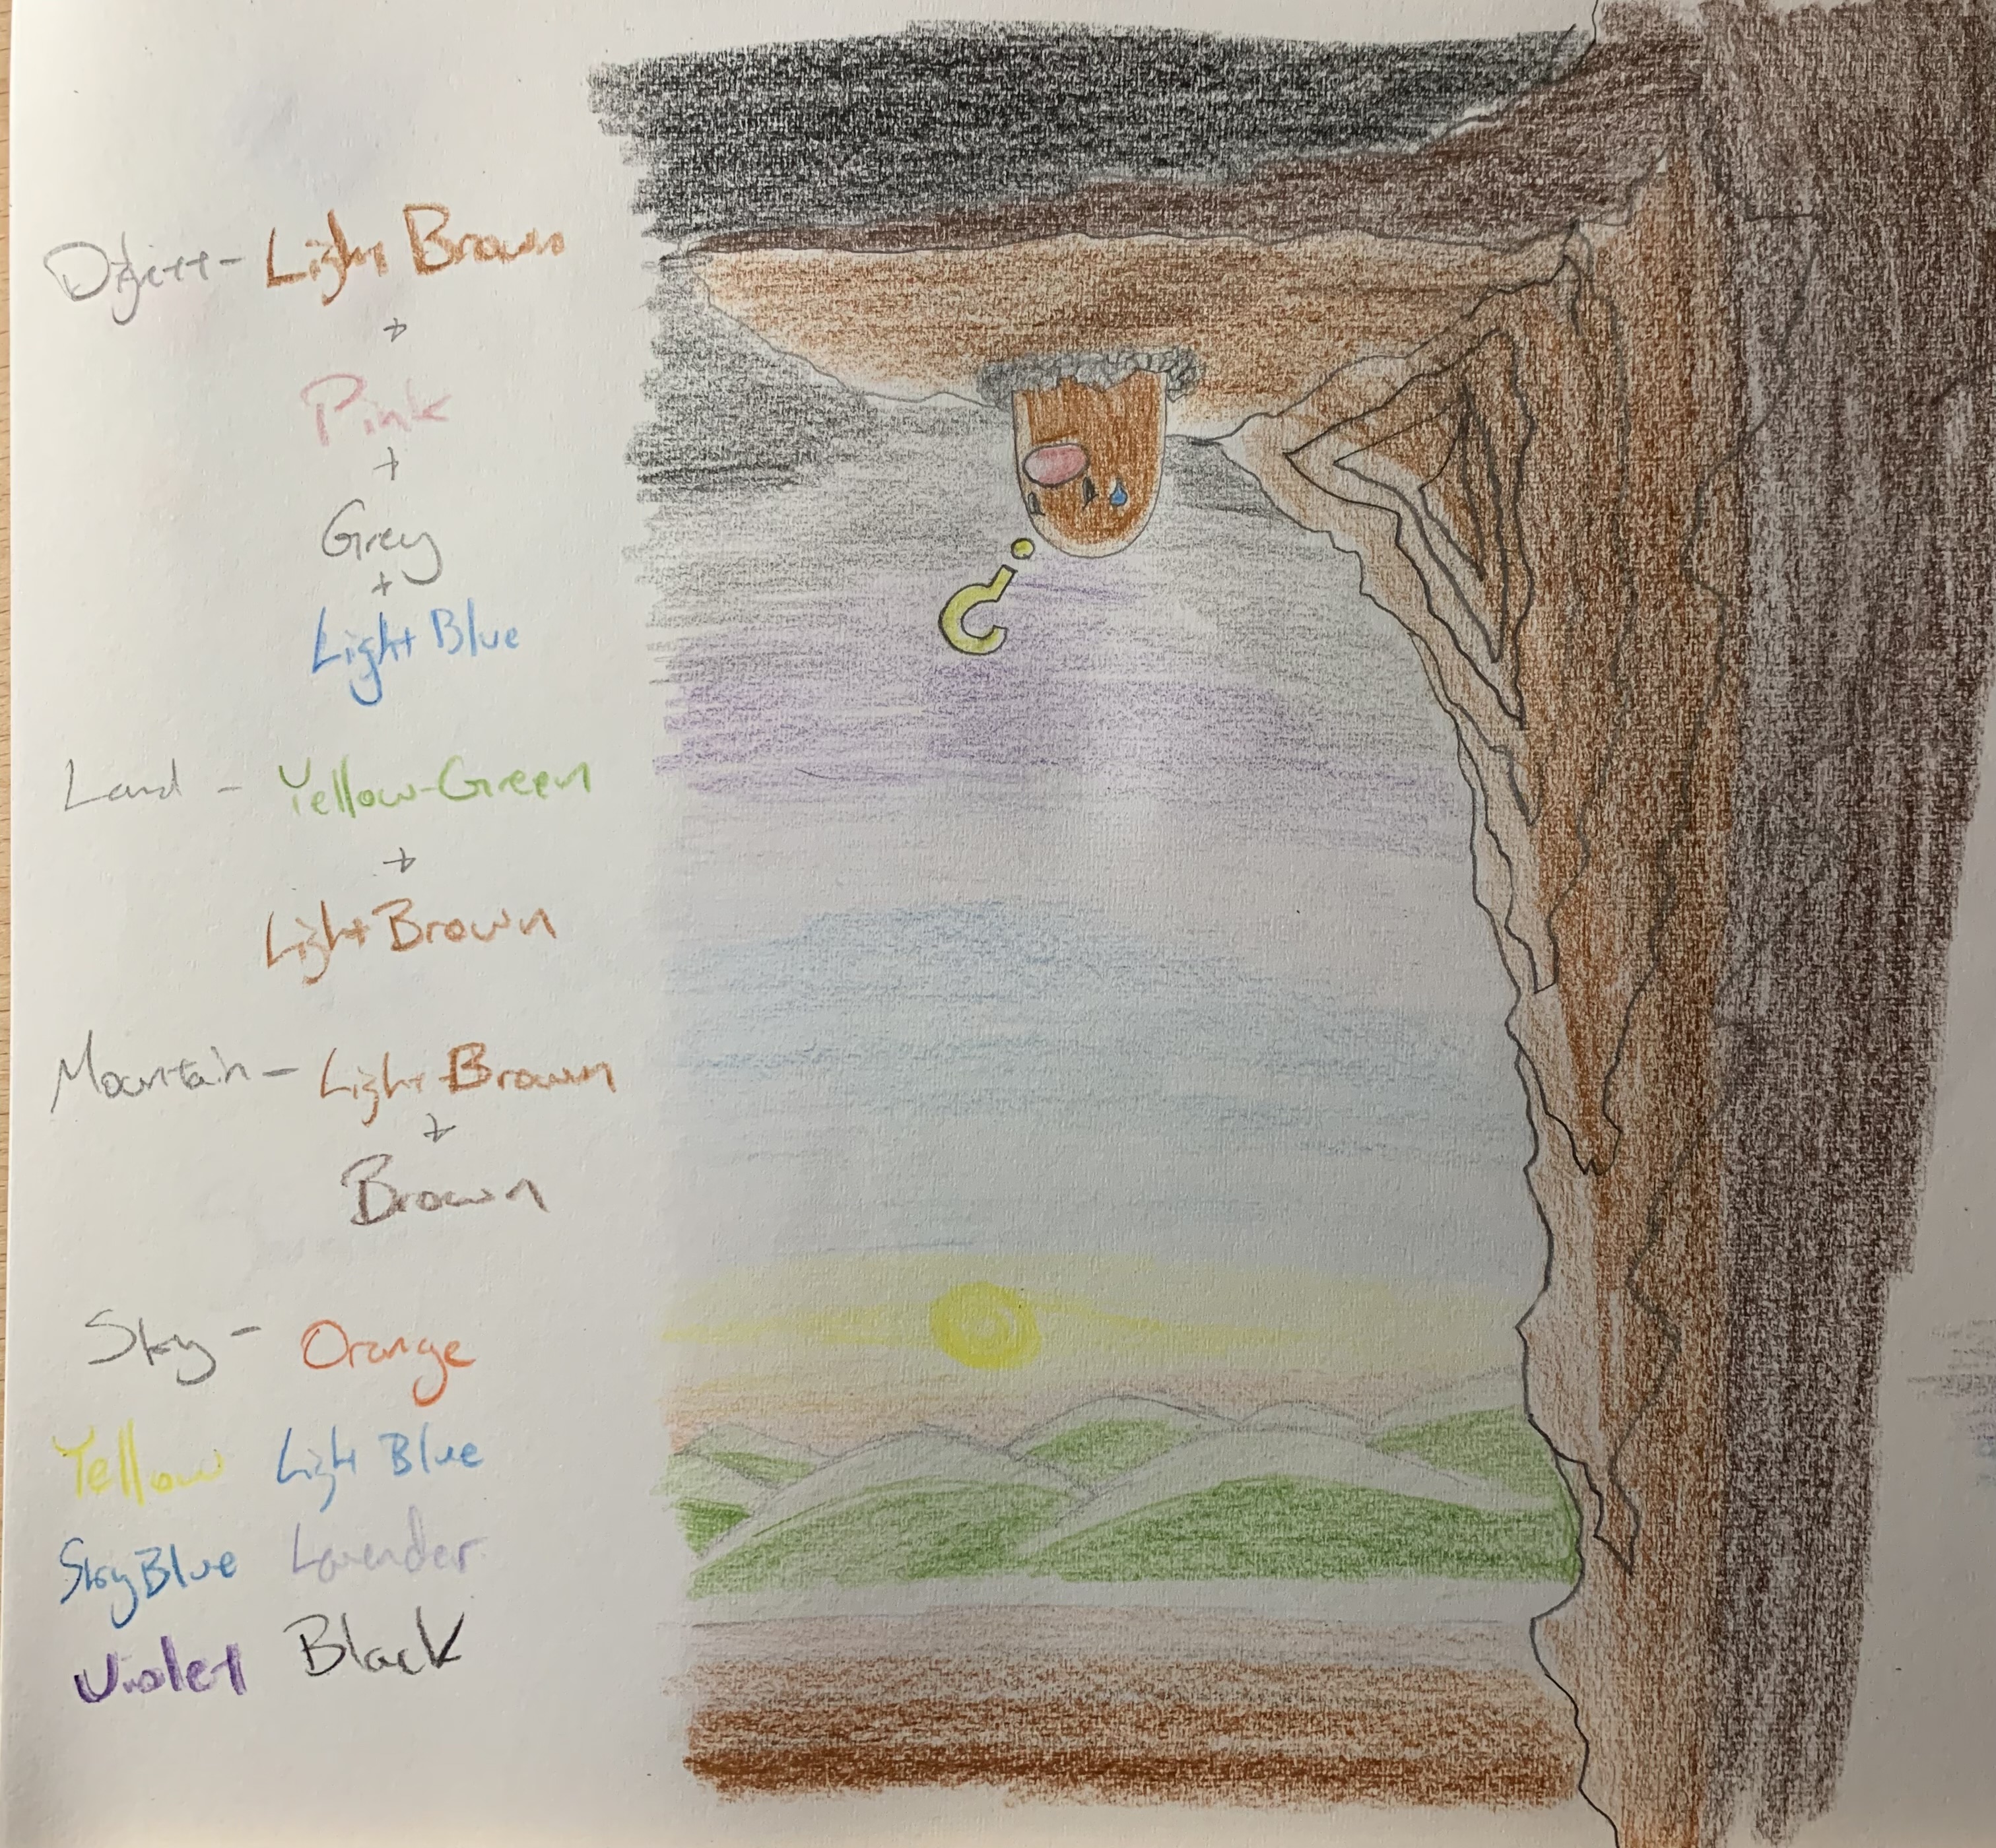 Diglett - Light Brown
+
Pink
+
Grey
+
Light Blue
Land - Yellow-Green
+
Light Brown
Mountain - Light Brown
+
Brown
Sky - Orange
Yellow Light Blue
Sky Blue Lavender
Violet Black
?